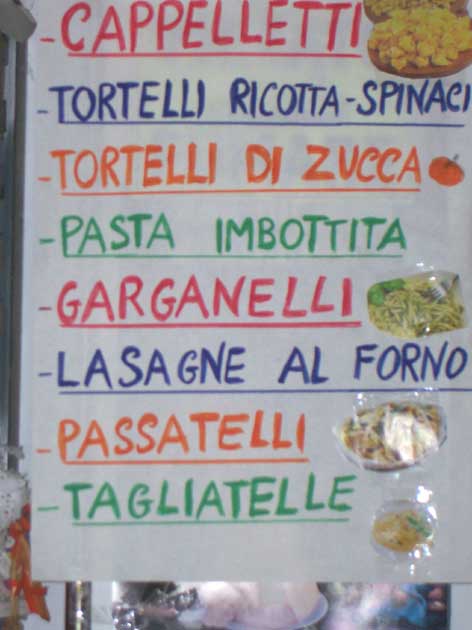 -CAPPELLETTI
-TORTELLI RICOTTA-SPINACI
-TORTELLI DI ZUCCA
-PASTA IMBOTTITA
-GARGANELLI
-LASAGNE AL FORNO
-PASSATELLI
-TAGLIATELLE